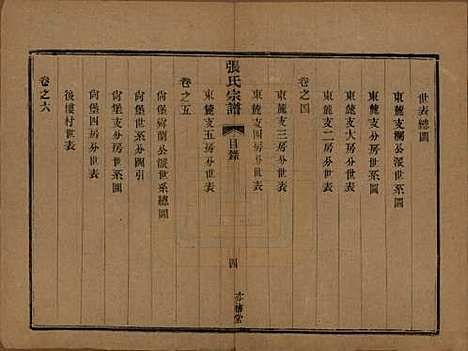 世表總圖
東麓支欄公派世系圖
東麓支分房世系圖
東麓支大房分世表
東麓支二房分世表
卷之四
東麓支三房分世表
東麓支四房分世表
張氏宗譜
目錄
四
東麓支五房分世表
卷之五
尙堡 公派世系總圖
尙堡世系分圖引
尙堡支分房世系圖
尙堡四房分世表
後樓村世表
卷之六